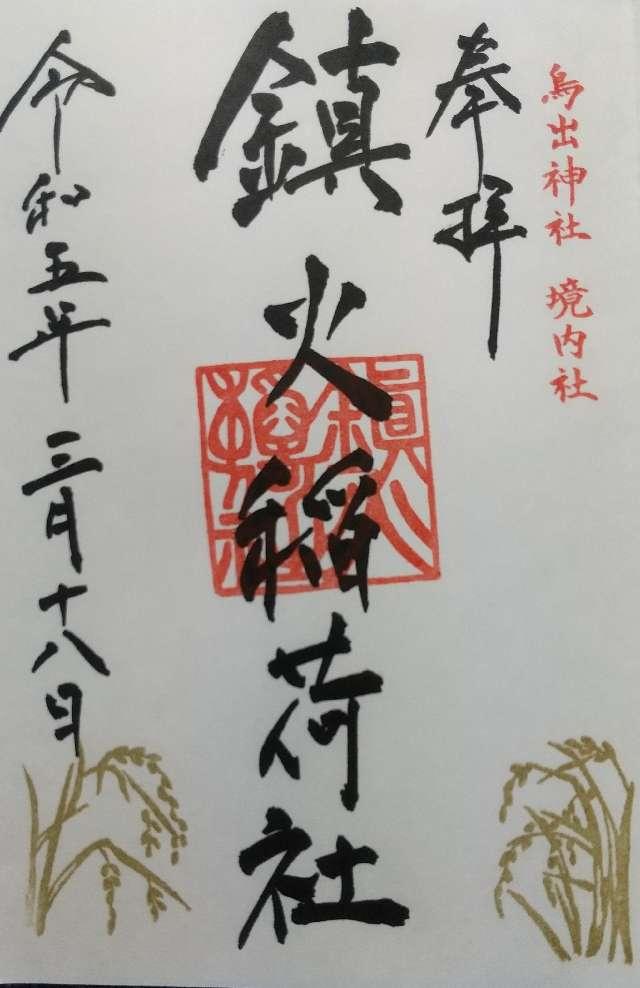 鳥出神社 境内社
奉拝
鎮火稲荷社
令和五年三月十八日